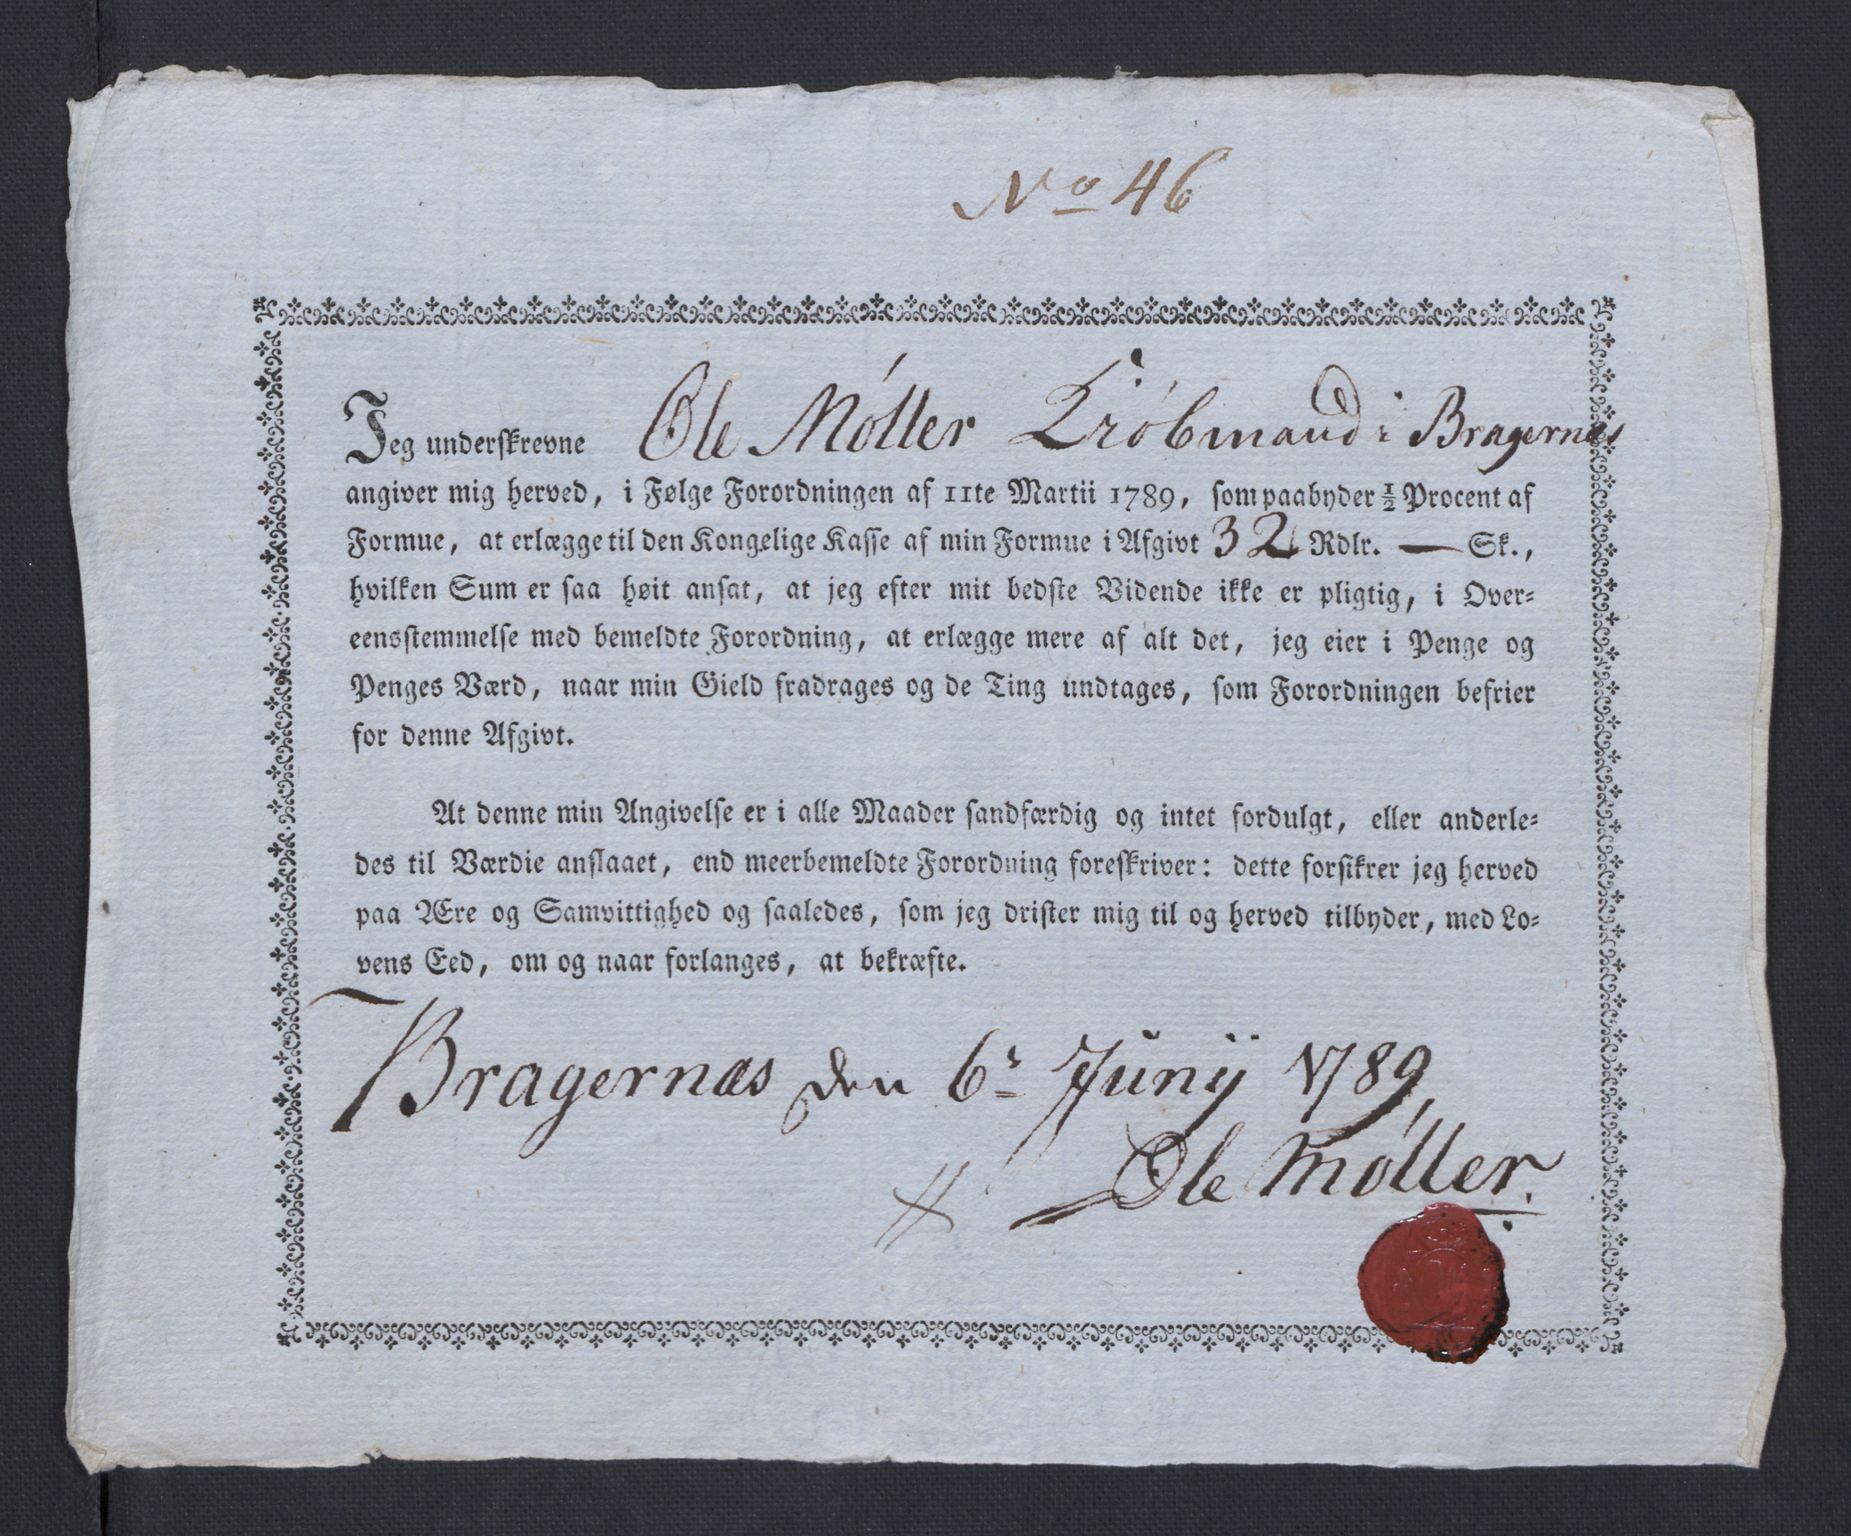 No 46
Jeg underskrevne Ole Møller Kiøbmand i Bragernæs
angiver mig herved, i Følge Forordningen af 11te Martii 1789, som paabyder ½ Procent af
Formue, at erlægge til den Kongelige Kasse af min Formue i Afgivt 32 Rdlr. — Sk.,
hvilken Sum er saa høit ansat, at jeg efter mit bedste Vidende ikke er pligtig, i Over-
eensstemmelse med bemeldte Forordning, at erlægge mere af alt det, jeg eier i Penge og
Penges Værd, naar min Gield fradrages og de Ting undtages, som Forordningen befrier
for denne Afgivt.
At denne min Angivelse er i alle Maader sandfærdig og intet fordulgt, eller anderle-
des til Værdie anslaaet, end meerbemeldte Forordning foreskriver: dette forsikrer jeg herved
paa Ære og Samvittighed og saaledes, som jeg drister mig til og herved tilbyder, med Lo-
vens Eed, om og naar forlanges, at bekræfte.
Bragernæs den 6r Junij 1789
Ole Møller.